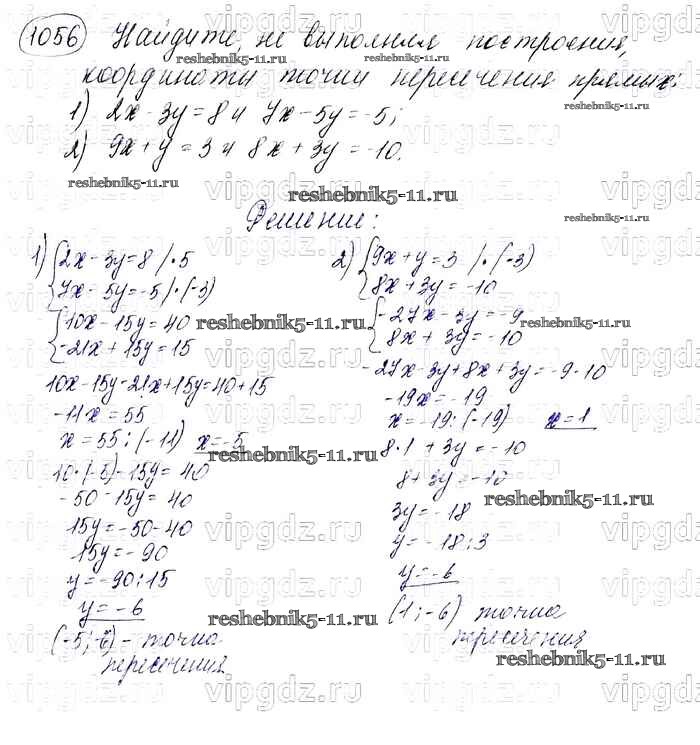 1056 Найдите, не выполняя построения,
координаты точки пересечения прямых:
1) 2x - 3y = 8 и 7x - 5y = -5;
2) 9x + y = 3 и 8x + 3y = -10.
Решение:
1) { 2x - 3y = 8 / · 5
7x - 5y = -5 / · (-3)
{ 10x - 15y = 40
-21x + 15y = 15
10x - 15y - 21x + 15y = 40 + 15
-11x = 55
x = 55 : (-11) x = -5
10 · (-5) - 15y = 40
-50 - 15y = 40
15y = -50 - 40
15y = -90
y = -90 : 15
y = -6
(-5; -6) - точка
пересечения
2) { 9x + y = 3 / · (-3)
8x + 3y = -10
{ -27x - 3y = -9
8x + 3y = -10
-27x - 3y + 8x + 3y = -9 - 10
-19x = -19
x = -19 : (-19) x = 1
8 · 1 + 3y = -10
8 + 3y = -10
3y = -18
y = -18 : 3
y = -6
(1; -6) точка
пересечения
reshebnik5-11.ru
vipgdz.ru